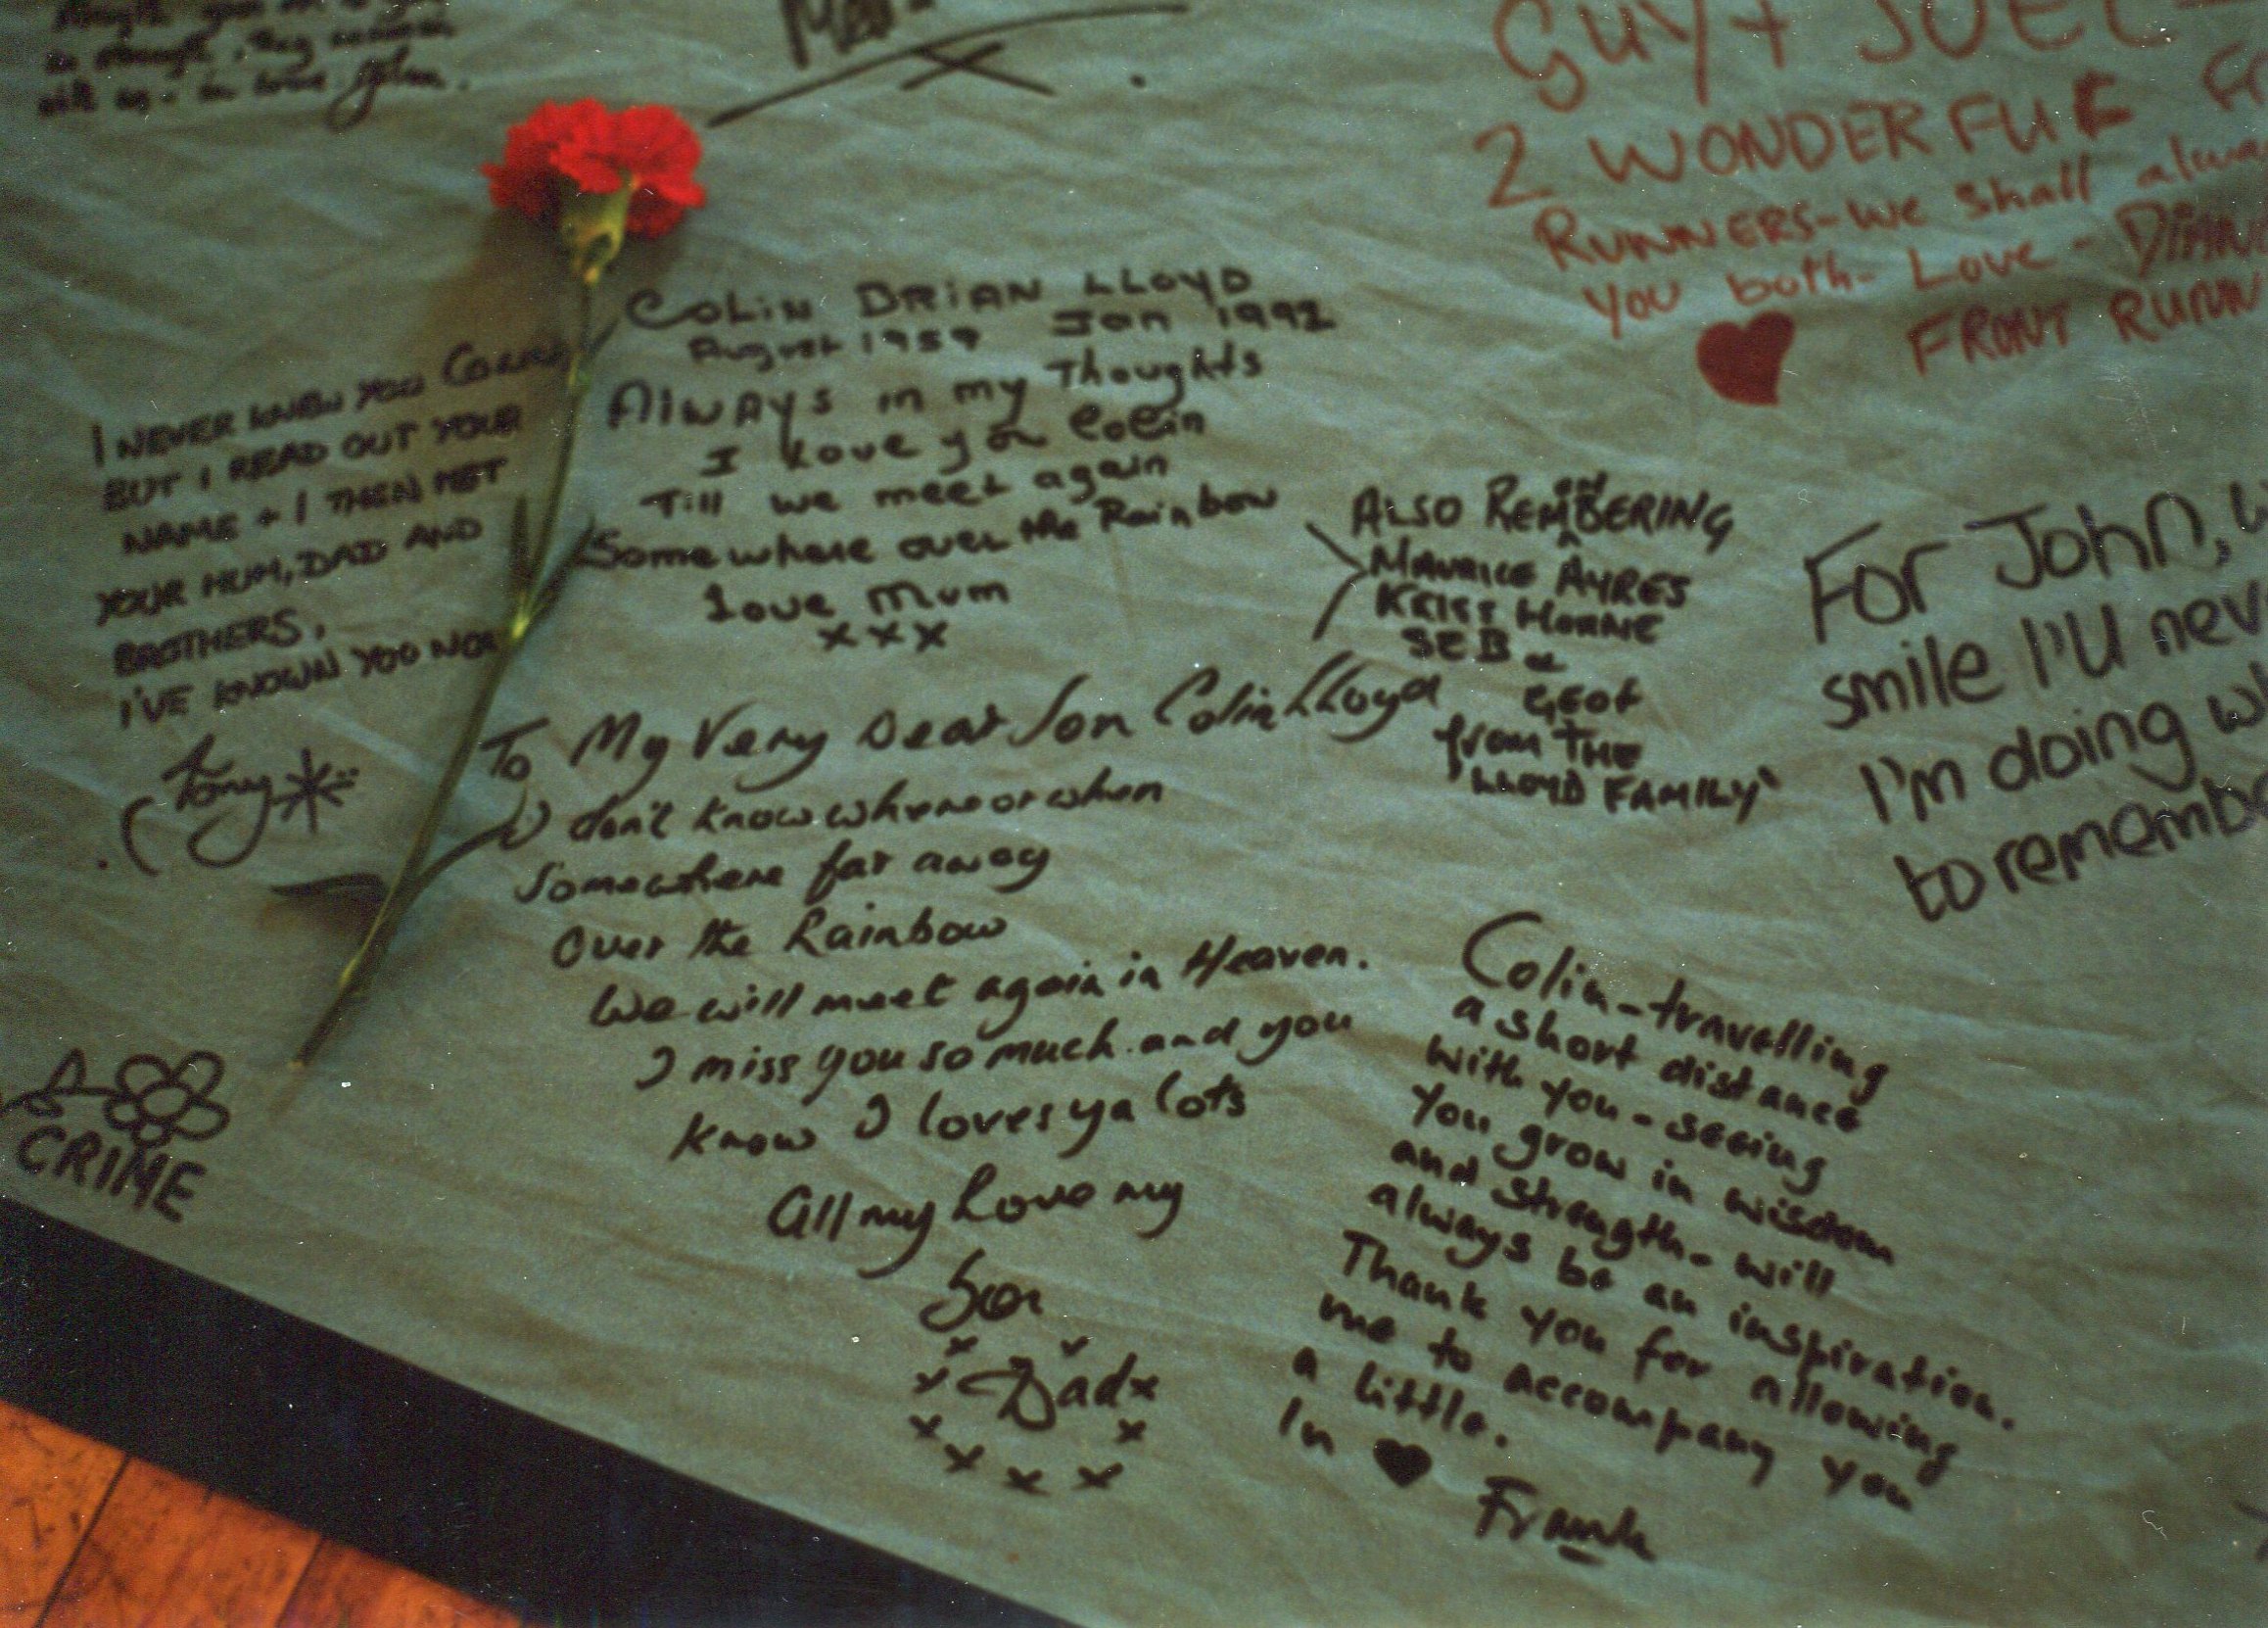 in strength. They
with us - in love John.
GUY + JOEL -
2 WONDERFUL
RUNNERS - We shall
you both - Love -
FRONT RUNN
COLIN BRIAN LLOYD
August 1959 Jan 1992
Always in my Thoughts
I love you Colin
Till we meet again
Somewhere over the Rainbow
Love Mum
x x x
I NEVER KNEW YOU COLIN
BUT I READ OUT YOUR
NAME + I THEN MET
YOUR MUM, DAD AND
BROTHERS.
I'VE KNOWN YOU NOW
Tony
ALSO REMEMBERING
MAURICE AYRES
KRISS HORNE
SEB &
GEOF
from THE
'LLOYD FAMILY'
For John,
smile I'll nev
I'm doing w
to remembe
To My Very Dear Son Colin Lloyd
I don't know where or when
Somewhere far away
Over the Rainbow
We will meet again in Heaven.
I miss you so much and you
know I loves ya lots
All my Love my
Son
x x
x Dad x
x x
x x x
Colin - travelling
a short distance
with you - seeing
you grow in wisdom
and strength - will
always be an inspiration.
Thank you for allowing
me to accompany you
a little.
In ♥ Frank
CRIME